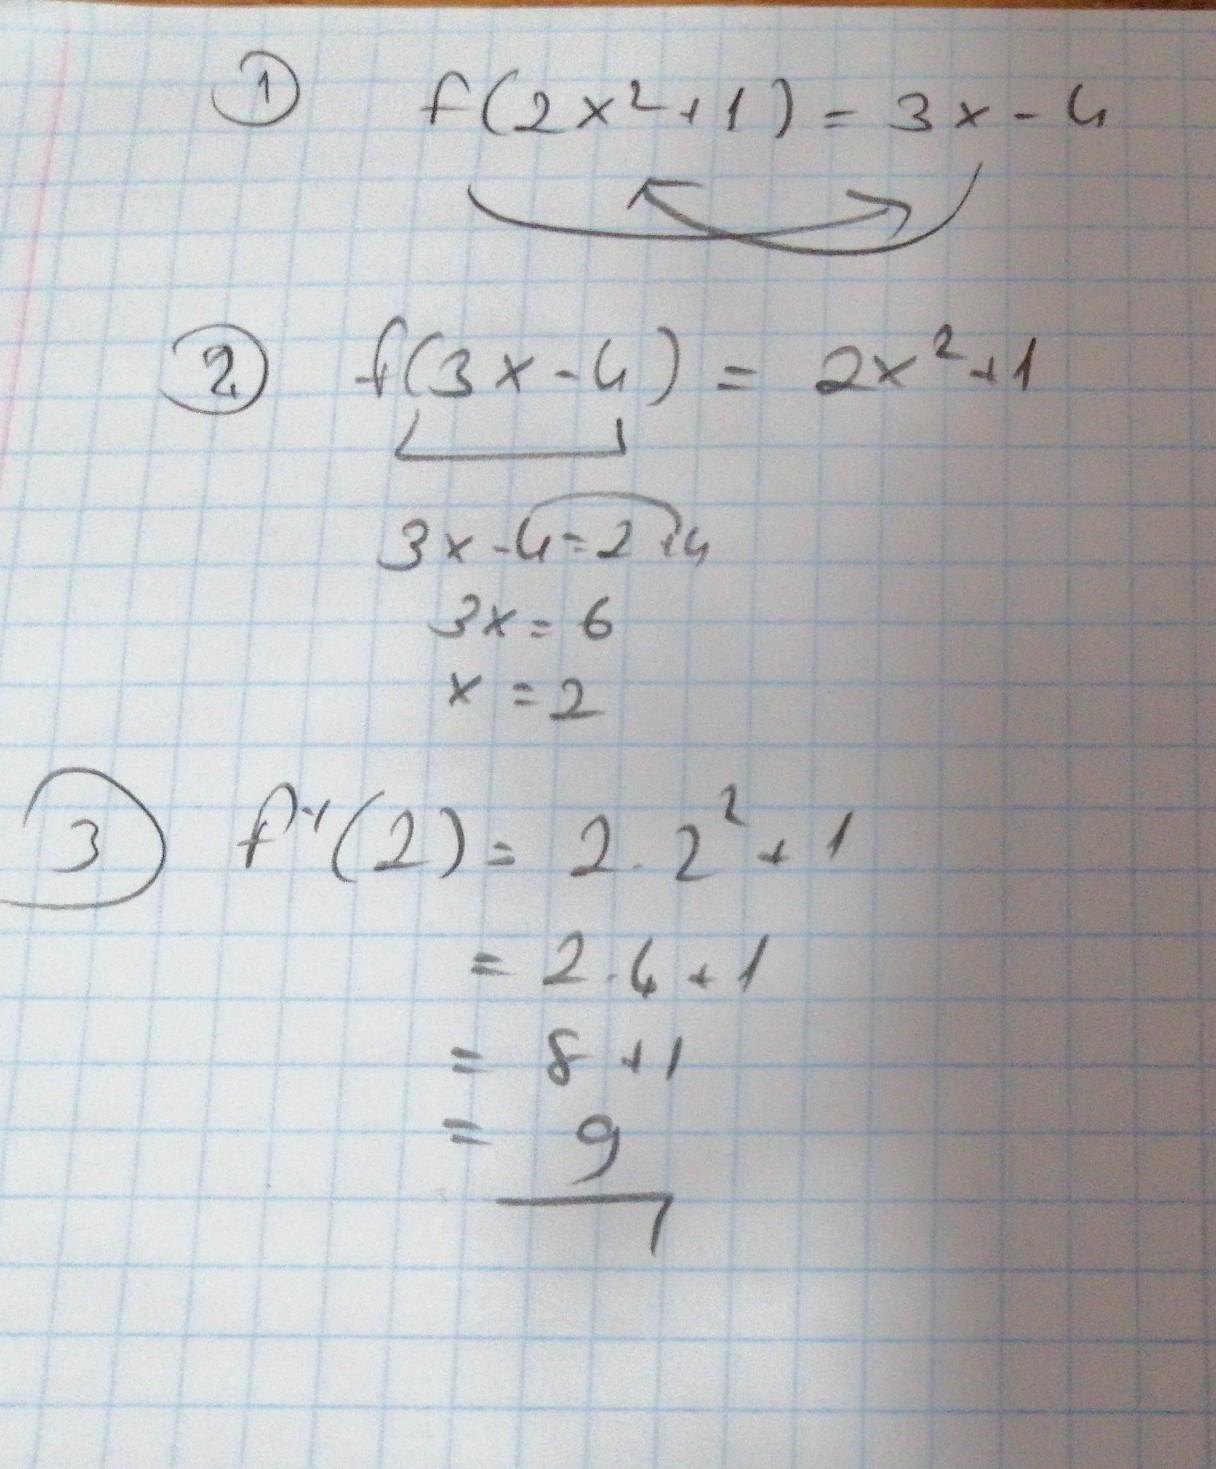 ① f(2x²+1) = 3x-4
② f(3x-4) = 2x²+1
3x-4=2+4
3x=6
x=2
③ f⁻¹(2) = 2.2²+1
= 2.4+1
= 8+1
= 9